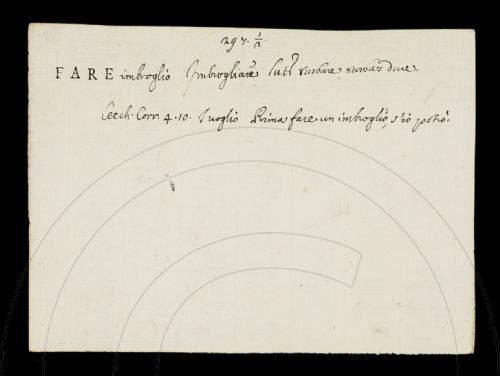 297. 1/2.
FARE imbroglio Imbrogliare Lat. turbare,
Cecch. Corr. 4. 10. I voglio Prima fare un imbroglio, s'io potrò.